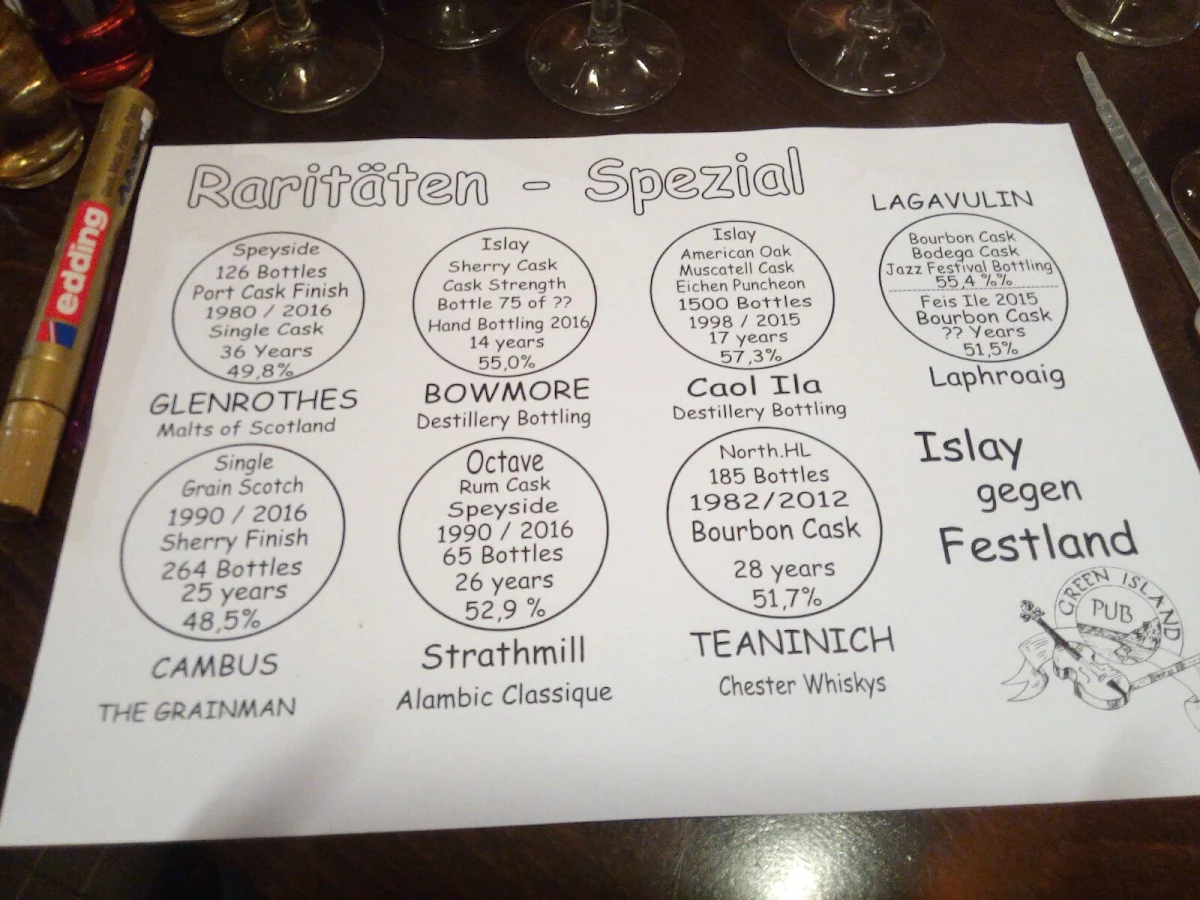 Raritäten - Spezial
Speyside
126 Bottles
Port Cask Finish
1980 / 2016
Single Cask
36 Years
49,8%
GLENROTHES
Malts of Scotland
Islay
Sherry Cask
Cask Strength
Bottle 75 of ??
Hand Bottling 2016
14 years
55,0%
BOWMORE
Destillery Bottling
Islay
American Oak
Muscatell Cask
Eichen Puncheon
1500 Bottles
1998 / 2015
17 years
57,3%
Caol Ila
Destillery Bottling
LAGAVULIN
Bourbon Cask
Bodega Cask
Jazz Festival Bottling
55,4 %%
Feis Ile 2015
Bourbon Cask
?? Years
51,5%
Laphroaig
Single
Grain Scotch
1990 / 2016
Sherry Finish
264 Bottles
25 years
48,5%
CAMBUS
THE GRAINMAN
Octave
Rum Cask
Speyside
1990 / 2016
65 Bottles
26 years
52,9 %
Strathmill
Alambic Classique
North.HL
185 Bottles
1982/2012
Bourbon Cask
28 years
51,7%
TEANINICH
Chester Whiskys
Islay
gegen
Festland
GREEN ISLAND
PUB
edding